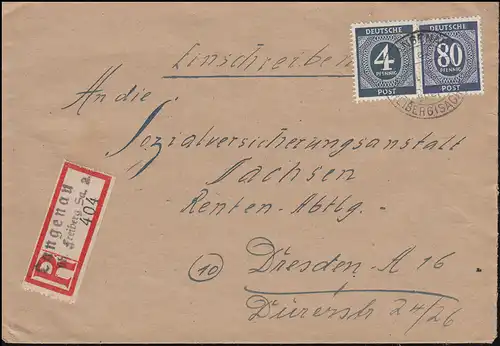 Einschreiben
DEUTSCHE DEUTSCHE
4 80
PFENNIG PFENNIG
POST POST
An die
Sozialversicherungsanstalt
Sachsen
Renten-Abtlg.
10 Dresden A 16
Dürerstr 24/26
Langenau
Freiberg Sa. a
404
R